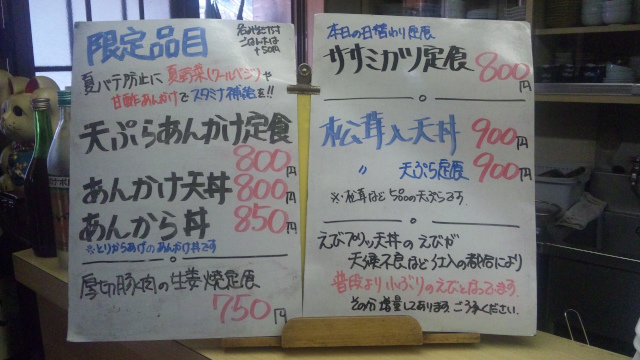 限定品目
ごはん大は
+50円
夏バテ防止に 夏野菜(ツールパジ)や
甘酢あんかけでスタミナ補給を!!
天ぷらあんかけ定食
800円
あんかけ天丼 800円
あんから丼 850円
※とりからあげのあんかけ丼です
厚切豚肉の生姜焼定食
750円
本日の日替わり定食
ササミカツ定食 800円
松茸入天丼 900円
〃 天ぷら定食 900円
※松茸ほど5品の天ぷらです
えびプリッ天丼のえびが
天候不良ほど、仕入の都合により
普段より小ぶりのえびとなってます。
その分増量してあります。ご了承ください。